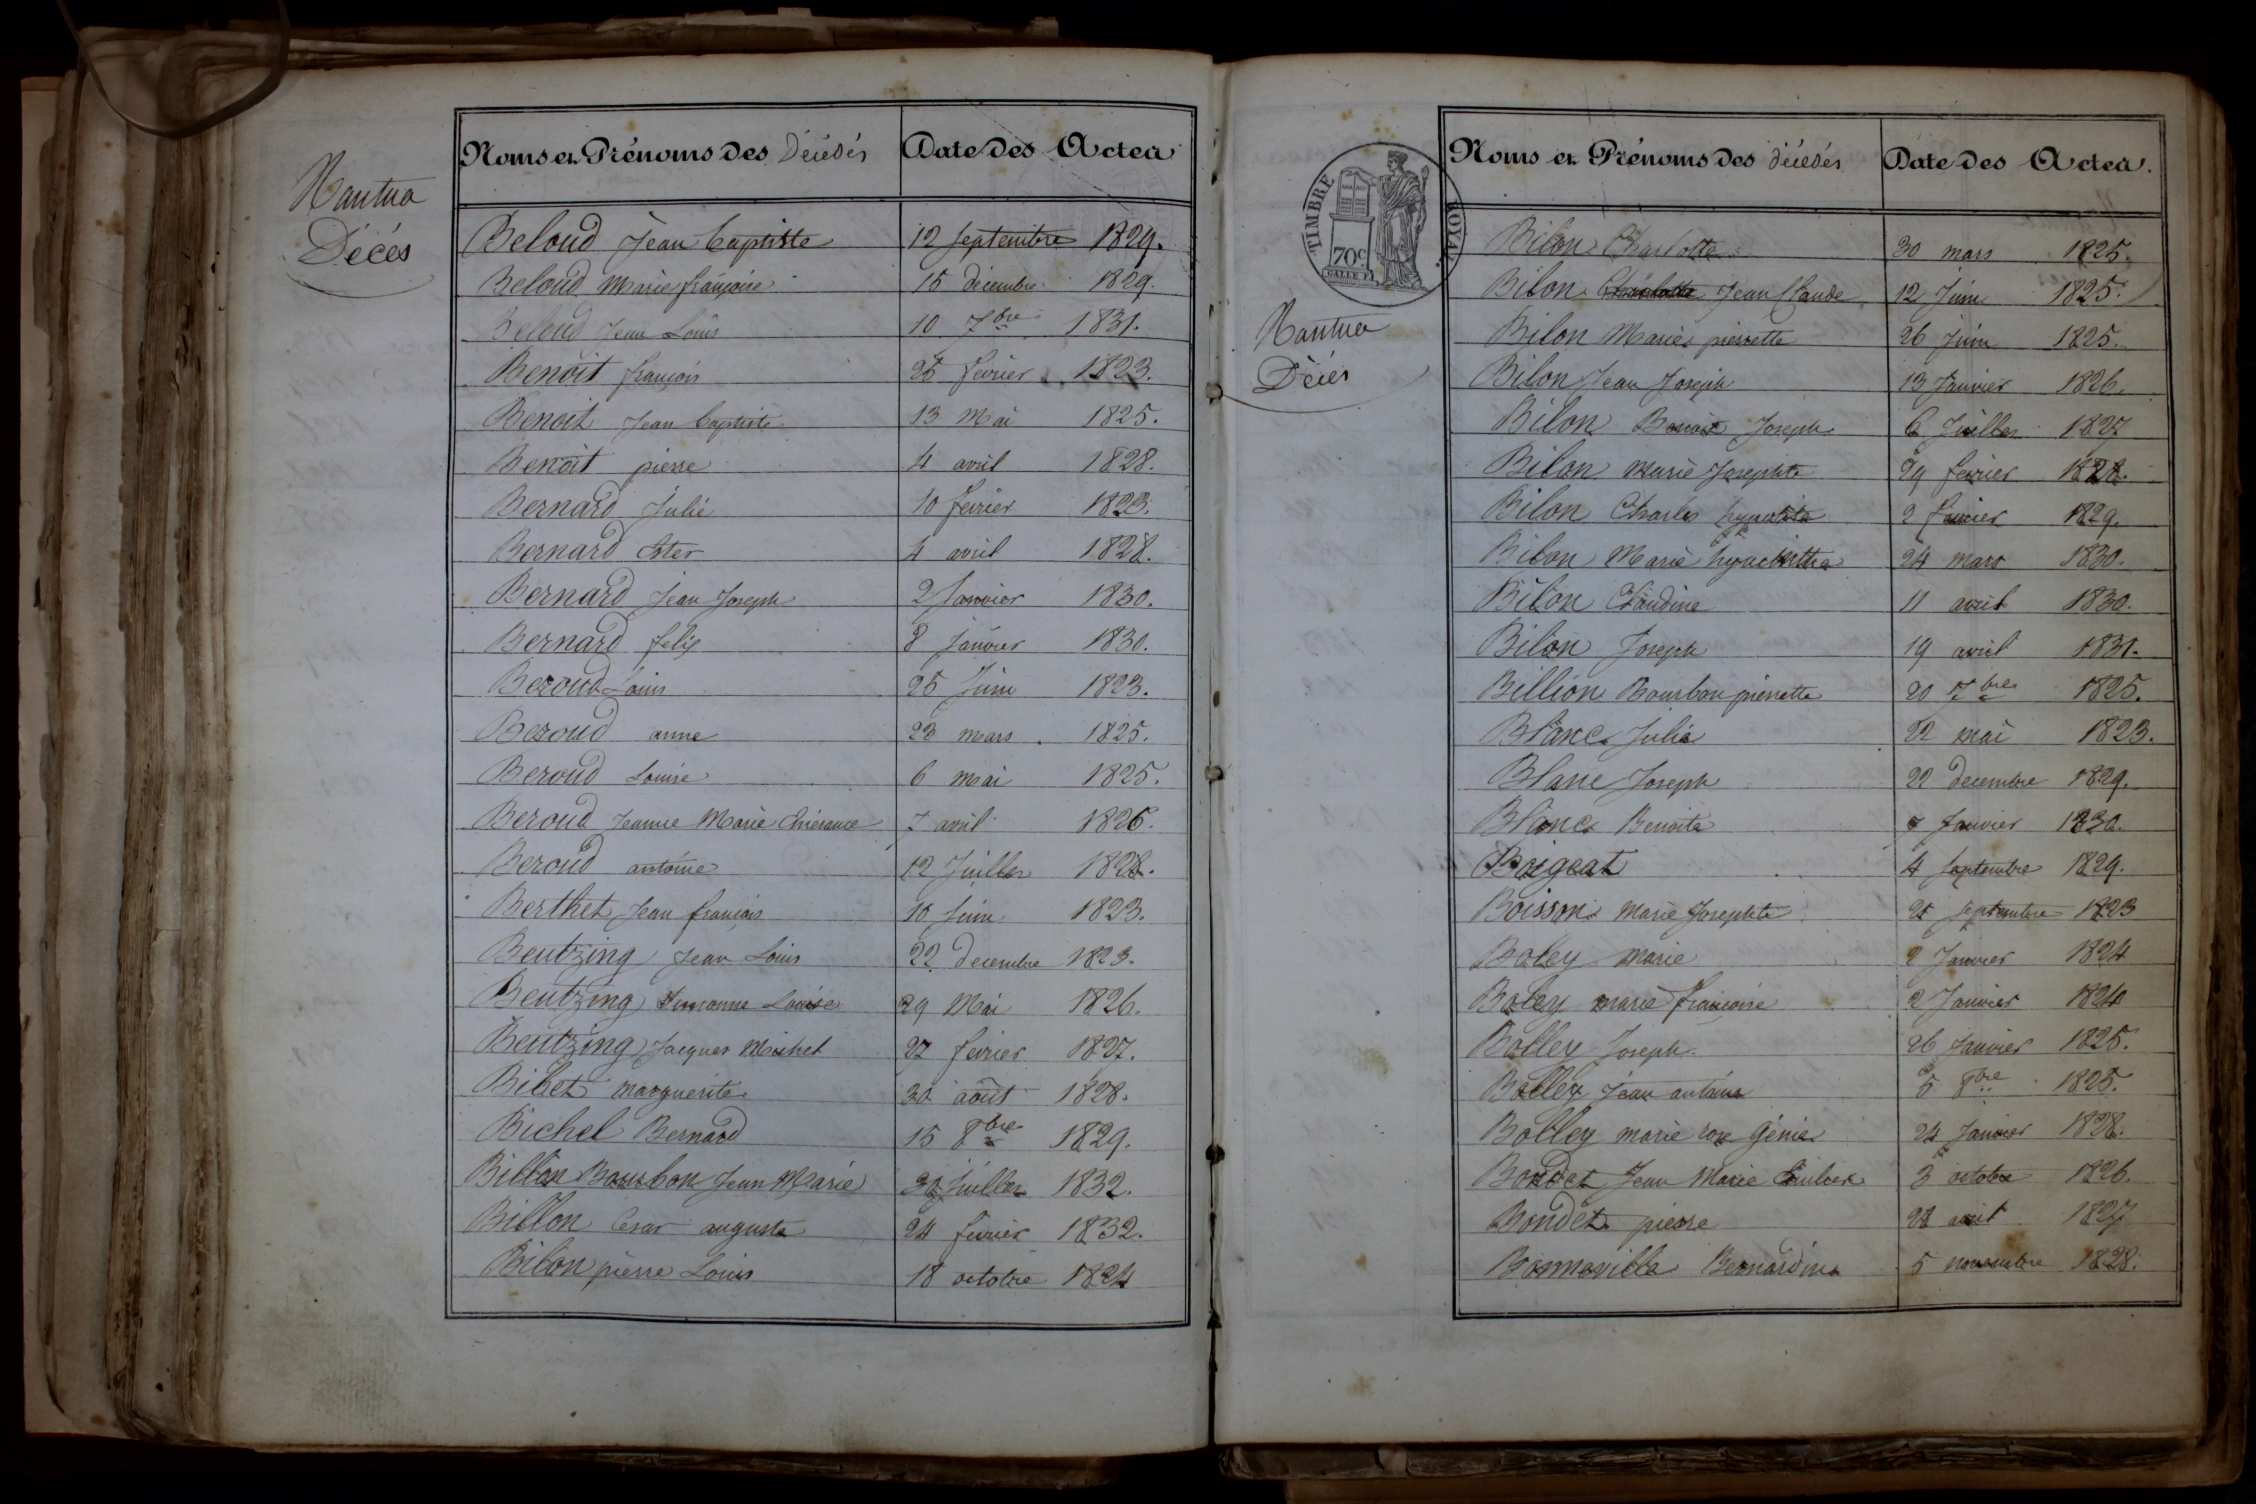 Nantua
Décés
Noms et Prénoms des Décédés Date des Actes
Beloud Jean Baptiste 12 Septembre 1829.
Beloud Marie françoise 15 décembre 1829.
Beloud Jean Louis 10 7bre 1831.
Benoit françois 25 fevrier 1823.
Benoit Jean Baptiste 13 Mai 1825.
Benoit pierre 4 avril 1828.
Bernard Julie 10 fevrier 1823.
Bernard 4 avril 1828.
Bernard Jean Joseph 2 Janvier 1830.
Bernard felix 8 Janvier 1830.
Beroud Louis 25 Juin 1823.
Beroud anne 23 mars 1825.
Beroud Louise 6 mai 1825.
Beroud Jeanne Marie 7 avril 1826.
Beroud antoine 12 Juillet 1828.
Berthet Jean françois 10 Juin 1823.
Beutzing Jean Louis 22 decembre 1823.
Beutzing Louise 29 Mai 1826.
Beutzing Jacques Michel 27 fevrier 1827.
Bibet marguerite 30 août 1828.
Bichel Bernard 15 8bre 1829.
Billon Bourbon Jean Marie Juillet 1832.
Billon Cesar auguste 24 fevrier 1832.
Bilon pierre Louis 18 octobre 1824
TIMBRE ROYAL
70c
Nantua
Décés
Noms et Prénoms des décédés Date des Actes.
Bilon Charlotte 30 mars 1825.
Bilon Charlotte Jean Claude 12 Juin 1825.
Bilon Marie pierrette 26 Juin 1825.
Bilon Jean Joseph 13 Janvier 1826.
Bilon Benoit Joseph 6 Juillet 1827
Bilon Marie Josephte 29 fevrier 1828.
Bilon Charles hypolite 2 1829.
Bilon Marie 24 mars 1830.
Bilon Claudine 11 avril 1830.
Bilon Joseph 19 avril 1831.
Billion Bourbon pierrette 20 7bre 1825.
Blanc Julie 22 mai 1823.
Blanc Joseph 22 decembre 1829.
Blanc Benoite Janvier 1830.
Boigeat 4 Septembre 1829.
Boisson Marie Josephte Septembre 1823
Boley Marie 2 Janvier 1824
Boley marie françoise 2 Janvier 1824
Bolley Joseph 26 Janvier 1825.
Bolley Jean antoine 5 8bre 1825.
Bolley marie rose génie 24 Janvier 1828.
Bondet Jean Marie 3 octobre 1826.
Bondet pierre 28 avril 1827
Bonneville Bernardine 5 novembre 1828.